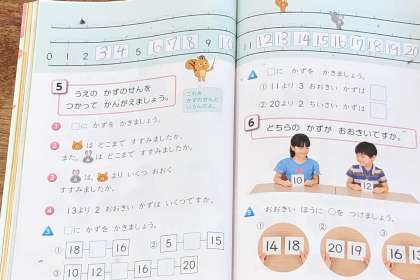 0 1 2 3 4 5 6 7 8 9 10 11 12 13 14 15 16 17 18 19 20
5 うえの かずのせんを
つかって かんがえましょう。
これを
かずのせんと
いうんだよ。
1 □に かずを かきましょう。
2 は どこまで すすみましたか。
また、 は どこまで すすみましたか。
3 は、 より いくつ おおく
すすみましたか。
4 13より 2 おおきい かずは いくつですか。
□に かずを かきましょう。
① 18 16
② 5 15
③ 10 12 16
④ 20 18
□に かずを かきましょう。
① 11より 3 おおきい かずは
② 20より 2 ちいさい かずは
6 どちらの かずが おおきいですか。
10
12
おおきい ほうに ○を つけましょう。
① 14 18
② 20 19
③ 16